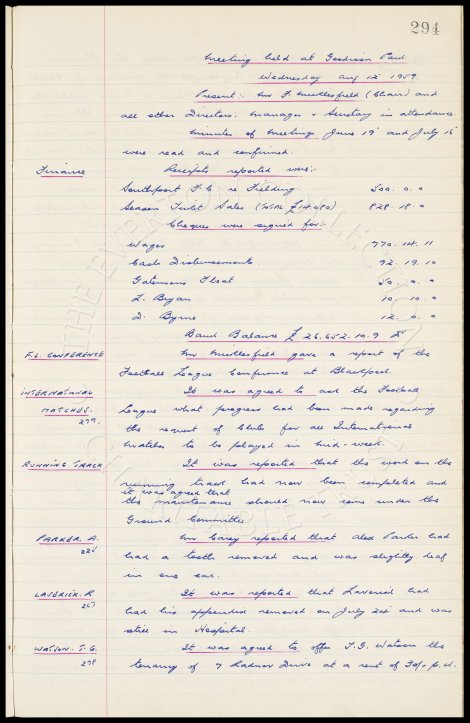 294
Meeting held at Goodison Park
Wednesday Aug 12th 1959.
Present: Mr F. Micklesfield (Chair) and
all other Directors. Manager & Secretary in attendance
Minutes of Meetings June 19th and July 15
were read and confirmed.
Finance Receipts reported were:-
Southport F.C. re Fielding 500. 0. 0
Season Ticket Sales (Total £14,080) 828. 18. 0
Cheques were signed for:-
Wages 770. 14. 11
Cash Disbursements 92. 19. 10
Gatemens Float 50. 0. 0
L. Bryan 10. 10. 0
D. Byrne 12. 0. 0
Bank Balance £ 26.652.10.9
F.L. CONFERENCE Mr Micklesfield gave a report of the
Football League Conference at Blackpool.
INTERNATIONAL It was agreed to ask the Football
MATCHES. League what progress had been made regarding
279. the request of Clubs for all International
matches to be played in mid-week.
RUNNING TRACK It was reported that the work on the
running track had now been completed and
it was agreed that
the maintenance should now come under the
Ground Committee
PARKER. A. Mr Carey reported that Alex Parker had
had a tooth removed and was slightly deaf
in one ear.
LAVERICK. R It was reported that Laverick had
267 had his appendix removed on July 24 and was
still in Hospital.
WATSON. T.G. It was agreed to offer T.G. Watson the
278 tenancy of 7 Radnor Drive at a rent of 30/- p.w.
THE EVERTON COLLECTION
CHARITABLE TRUST